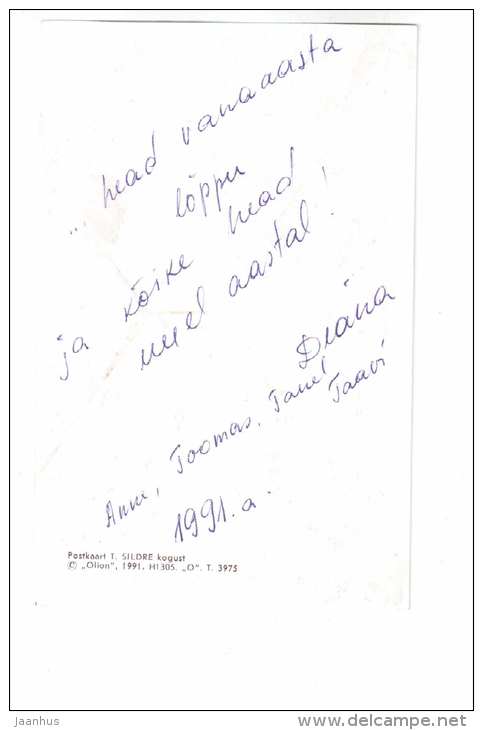 ... head vanaaasta
lõppu
ja kõike head
uuel aastal!
Diana
Anne, Toomas, Tanel
Taavi
1991.a.
Postkaart T. SILDRE kogust
© „Olion", 1991. H1305. „O". T. 3975
jaanhus
www.delcampe.net